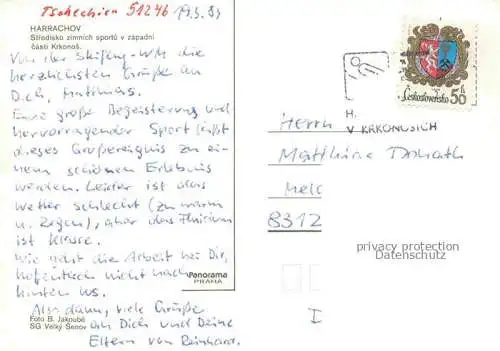 Tschechien 51246 19.3.83
HARRACHOV
Středisko zimních sportů v západní
části Krkonoš.
Von der Skiflug-WM die
herzlichsten Grüße an
Dich, Matthias.
Eine große Begeisterung und
hervorragender Sport läßt
dieses Großereignis zu ei-
nem schönen Erlebnis
werden. Leider ist das
Wetter schlecht (zu warm
u. Regen), aber das Fluidum
ist Klasse.
Wie geht die Arbeit bei Dir,
hoffentlich nicht nach
hinten los.
Also dann, viele Grüße
an Dich und Deine
Eltern von Reinhard.
Panorama
PRAHA
Foto B. Jakoubě
SG Velký Šenov
Československo 50 h
H
V KRKONOŠÍCH
Herrn
Matthias Donath
8312
privacy protection
Datenschutz